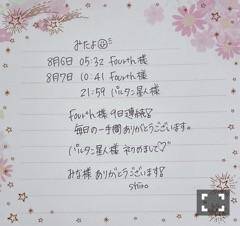 みたよ☺
8月6日 05:32 fourth様
8月7日 10:41 fourth様
21:59 バルタン星人様
fourth様 9日連続!
毎日の一手間ありがとうございます。
バルタン星人様 ネクめまして♡
みな様 ありがとうございます!
shino